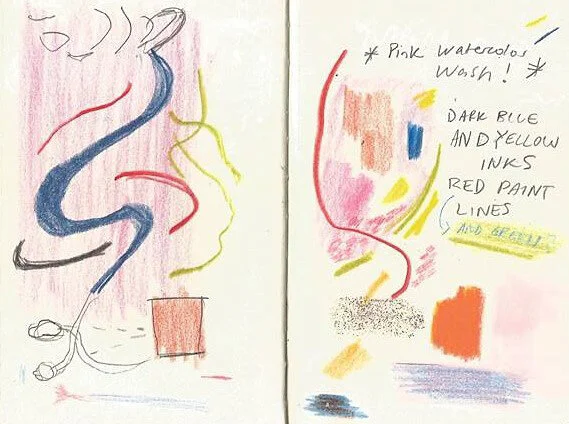 * Pink Watercolor
Wash! *
DARK BLUE
AND YELLOW
INKS
RED PAINT
LINES
AND GREEN